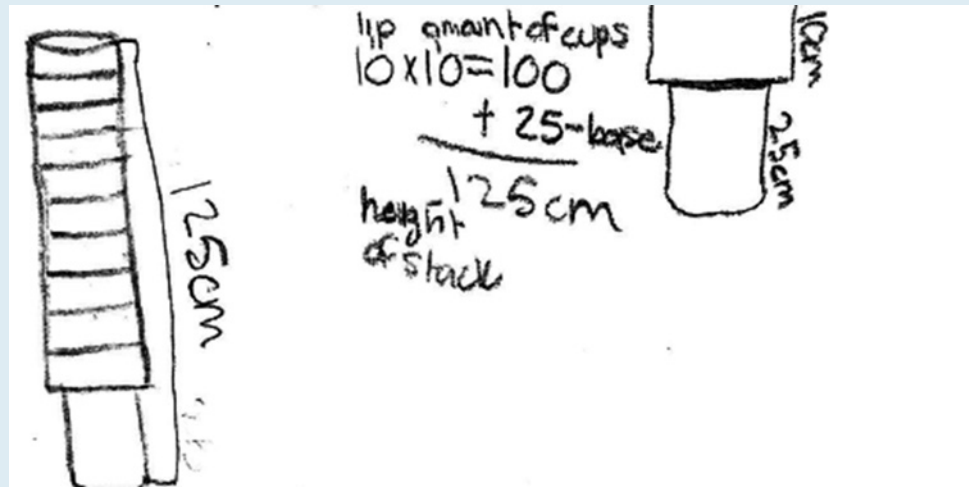 lip amount of cups
10x10=100
+ 25-base
125cm
height
of stack
10cm
25cm
125cm